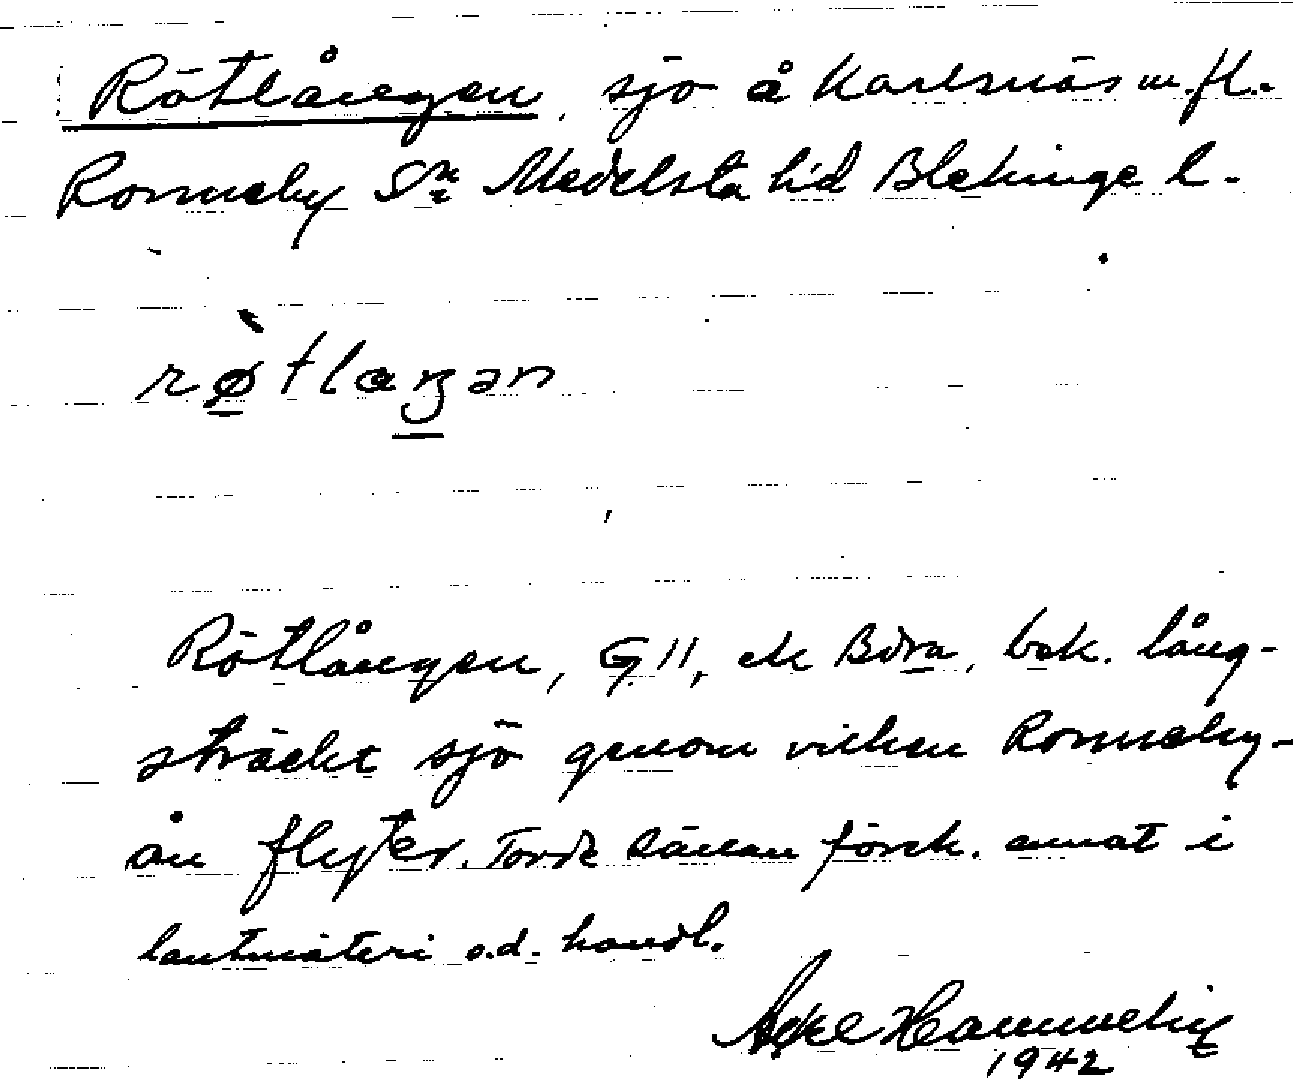 Rötlången, sjö å Karlsnäs m.fl.
Ronneby Sn Medelsta hd Blekinge l.
rø̀tlaŋən
Rötlången, G 11, ek Bdra, bek. lång-
sträckt sjö genom vilken Ronneby-
ån flyter. Torde sällan förek. annat i
lantmäteri o.d. handl.
Åke
1942